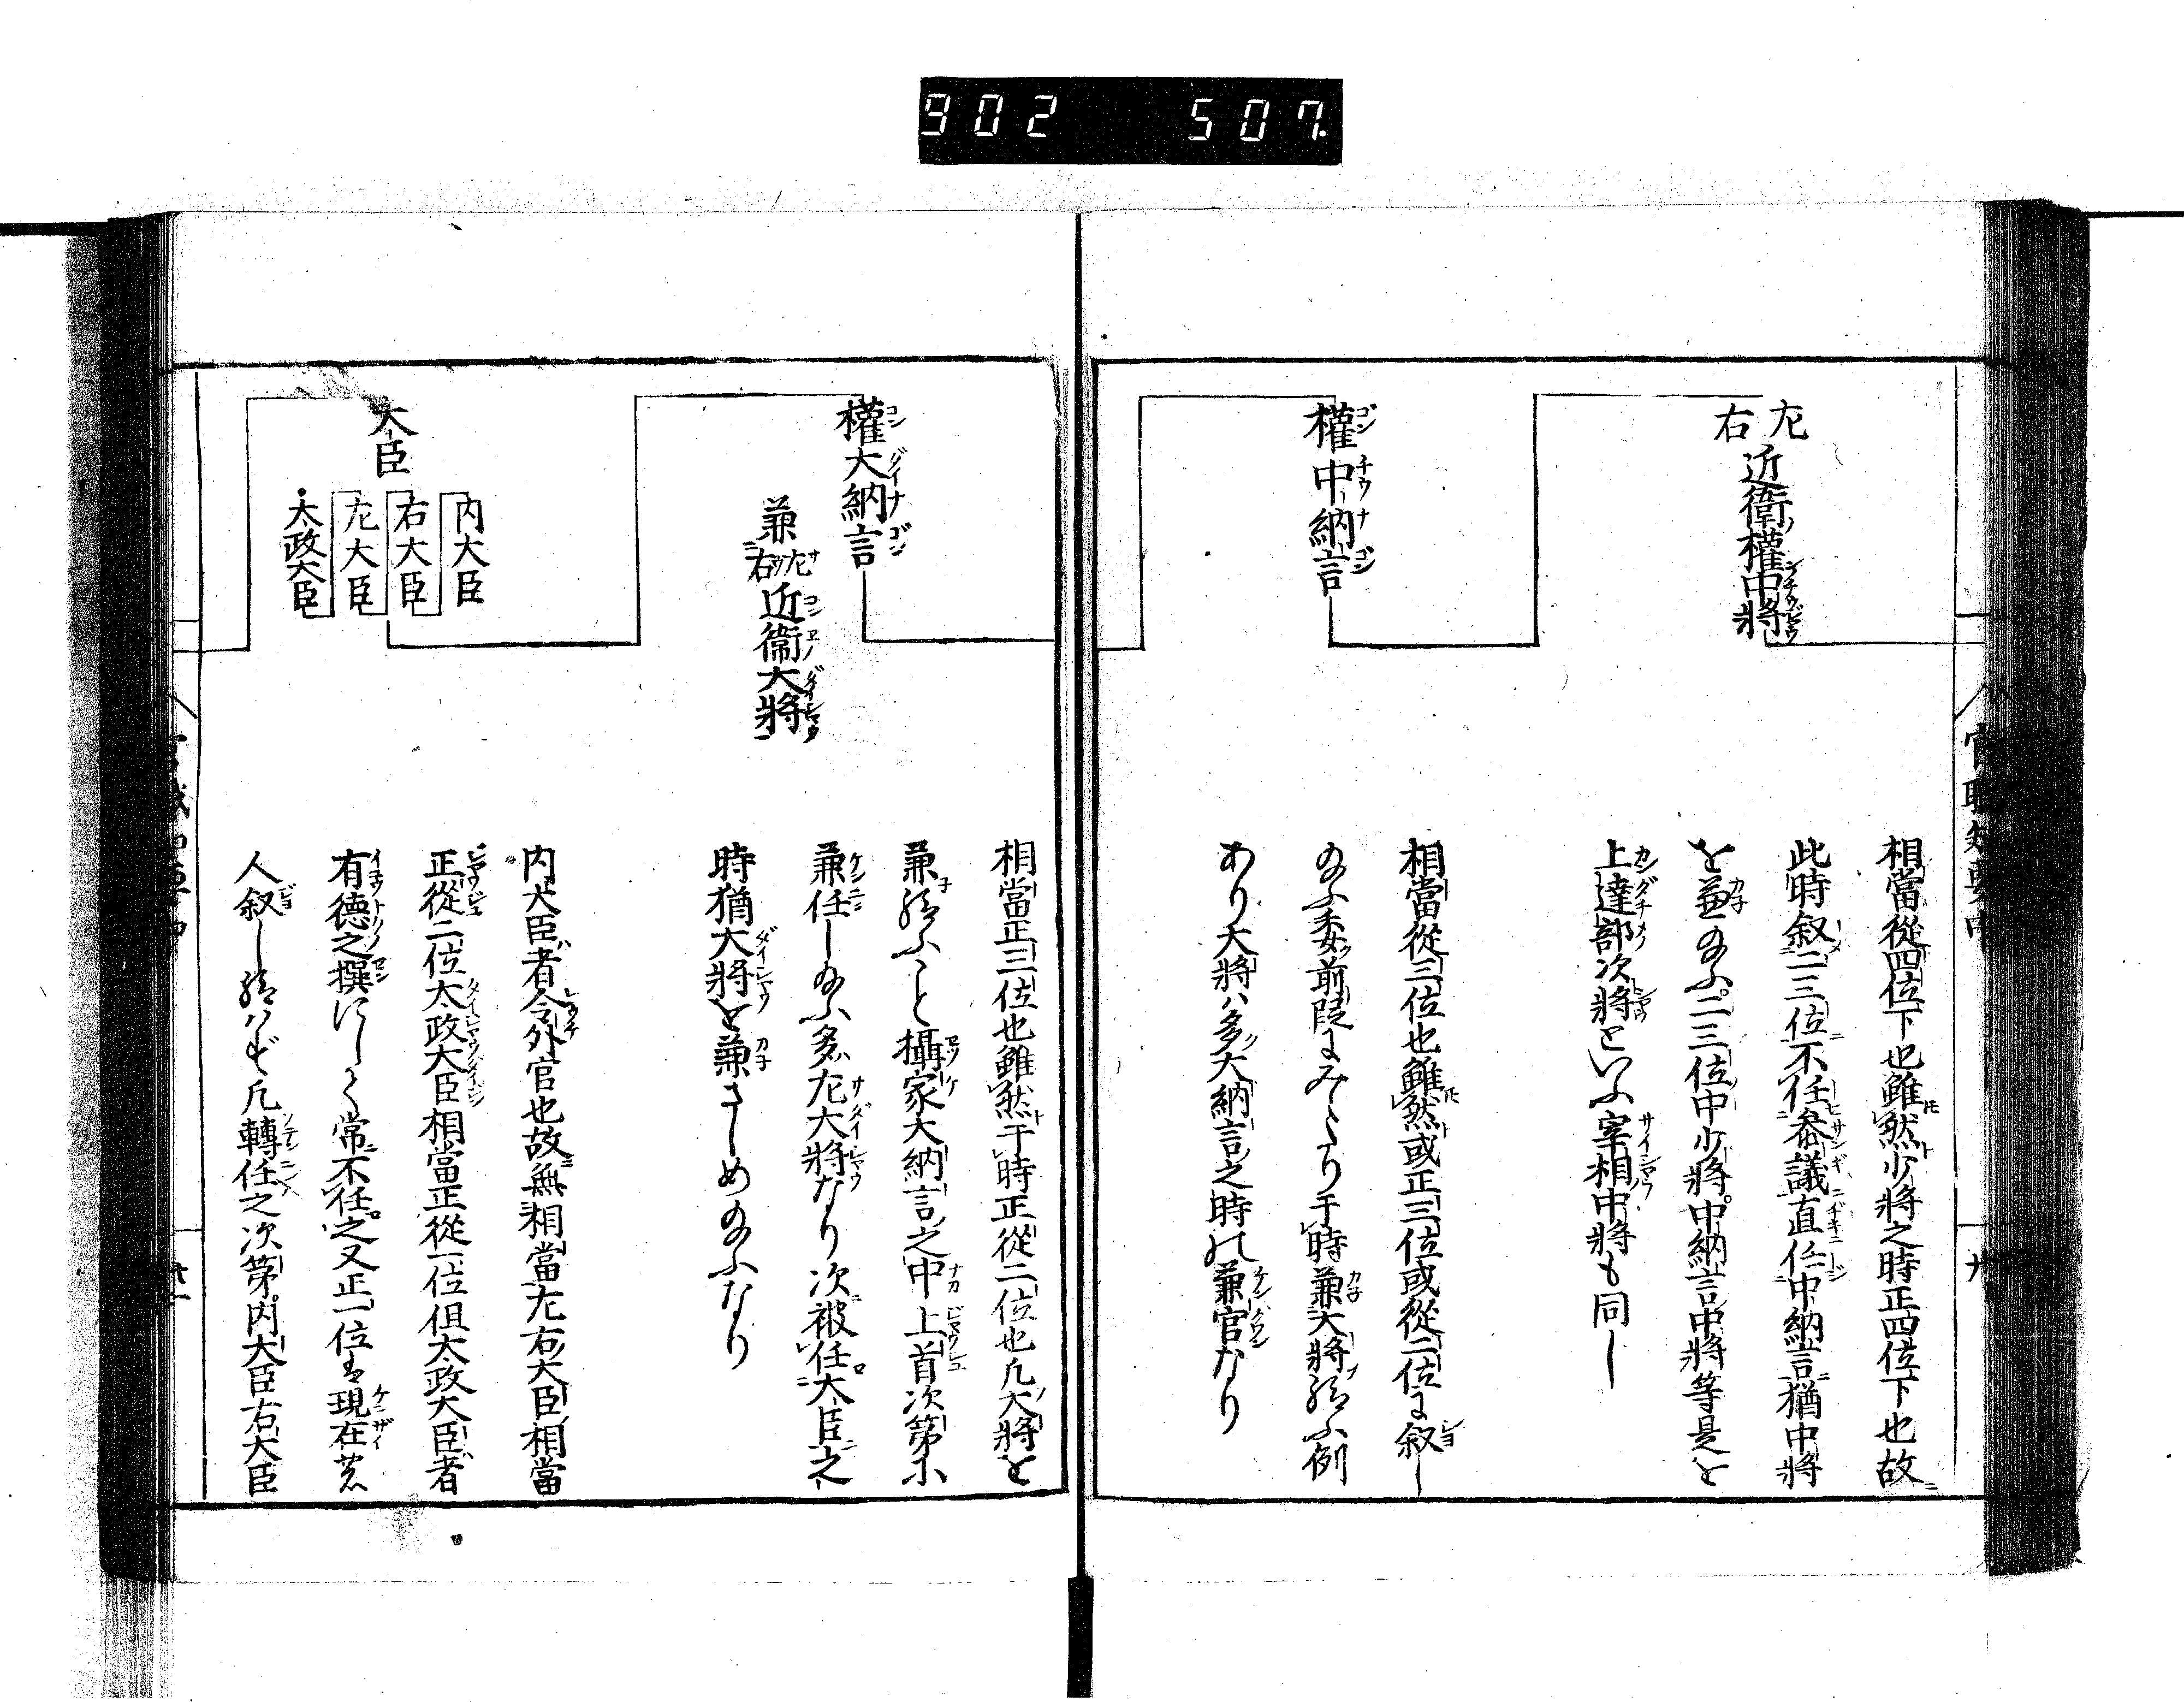 902 507
左右近衛ノ權中將
相當從四位下也雖然少將之時正四位下也故
此時叙二三位不任参議直任中納言猶中將
を兼給ふ二三位中少將中納言中將等是を
上達部次將といふ宰相中將も同し
權中納言
相當從三位也雖然或正三位或從二位に叙し
給ふ委前段にみえたり于時兼大將給ふ例
あり大將ハ多大納言之時の兼官なり
權大納言
兼左右近衞大將
相當正三位也雖然于時正從二位也凡大將を
兼給ふこと攝家大納言之中上首次第に
兼任し給ふ多ハ左大將なり次被任大臣之
時猶大將を兼さしめ給ふなり
大臣
内大臣
右大臣
左大臣
太政大臣
内大臣者令外官也故無相當左右大臣相當
正從二位太政大臣相當正從一位但太政大臣者
有德之撰にして常不任之又正一位は現在
人叙し給はず凡轉任之次第内大臣右大臣
官職知要中